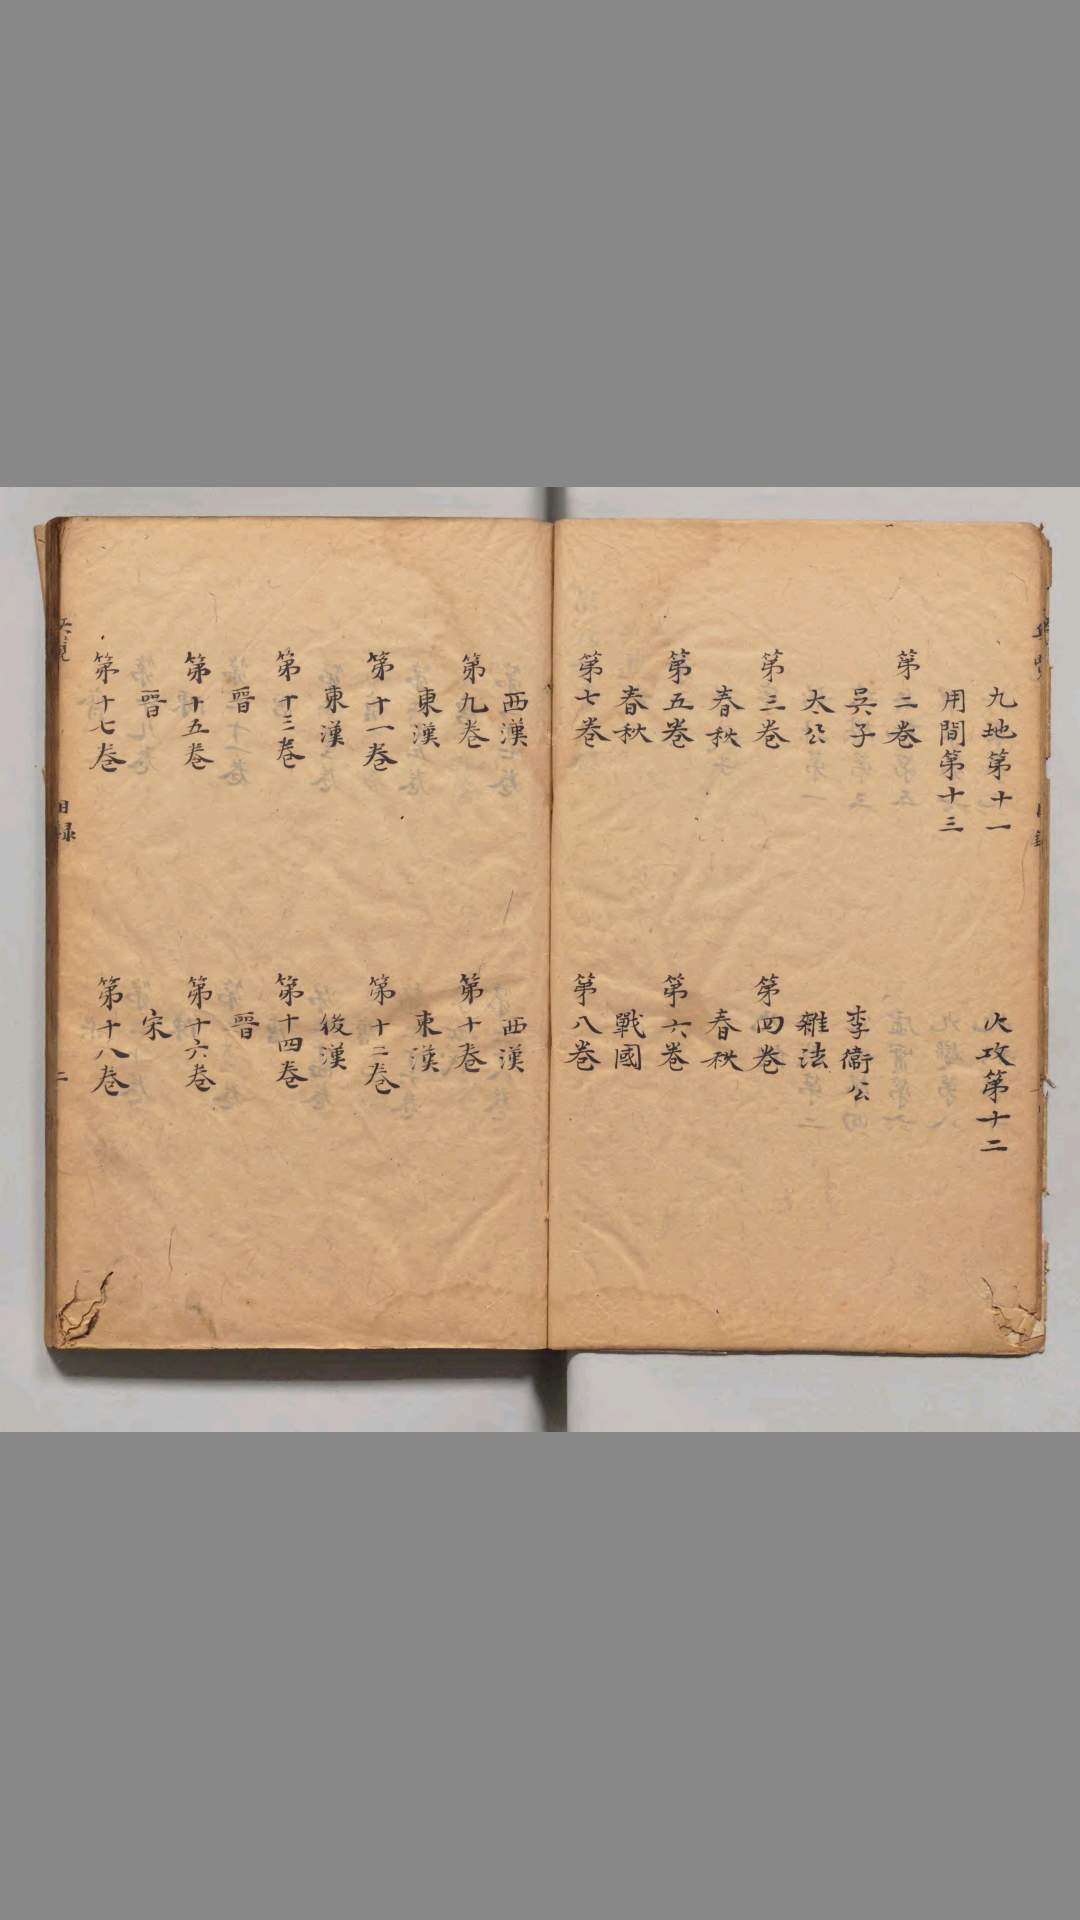 九地第十一
火攻第十二
用間第十三
第二卷
吳子
李衞公
太公
雜法
第三卷
第四卷
春秋
春秋
第五卷
第六卷
春秋
戰國
第七卷
第八卷
西漢
西漢
第九卷
第十卷
東漢
東漢
第十一卷
第十二卷
東漢
後漢
第十三卷
第十四卷
晉
晉
第十五卷
第十六卷
晉
宋
第十七卷
第十八卷
目録
二